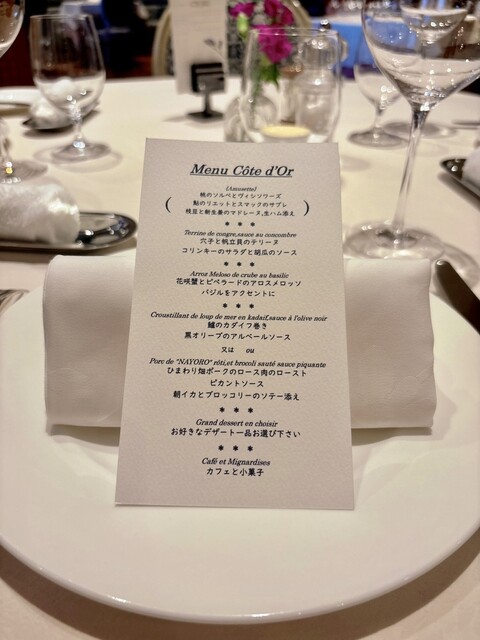 Menu Côte d'Or
(Amusette)
桃のソルベとヴィシソワーズ
鮎のリエットとスマックのサブレ
枝豆と新生姜のマドレーヌ,生ハム添え
* * *
Terrine de congre,sauce au concombre
穴子と帆立貝のテリーヌ
コリンキーのサラダと胡瓜のソース
* * *
Arroz Meloso de crabe au basilic
花咲蟹とピペラードのアロスメロッソ
バジルをアクセントに
* * *
Croustillant de loup de mer en kadaif,sauce à l'olive noir
鱸のカダイフ巻き
黒オリーブのアルベールソース
又は ou
Porc de "NAYORO" rôti,et brocoli sauté sauce piquante
ひまわり畑ポークのロース肉のロースト
ピカントソース
朝イカとブロッコリーのソテー添え
* * *
Grand dessert en choisir
お好きなデザート一品お選び下さい
* * *
Café et Mignardises
カフェと小菓子